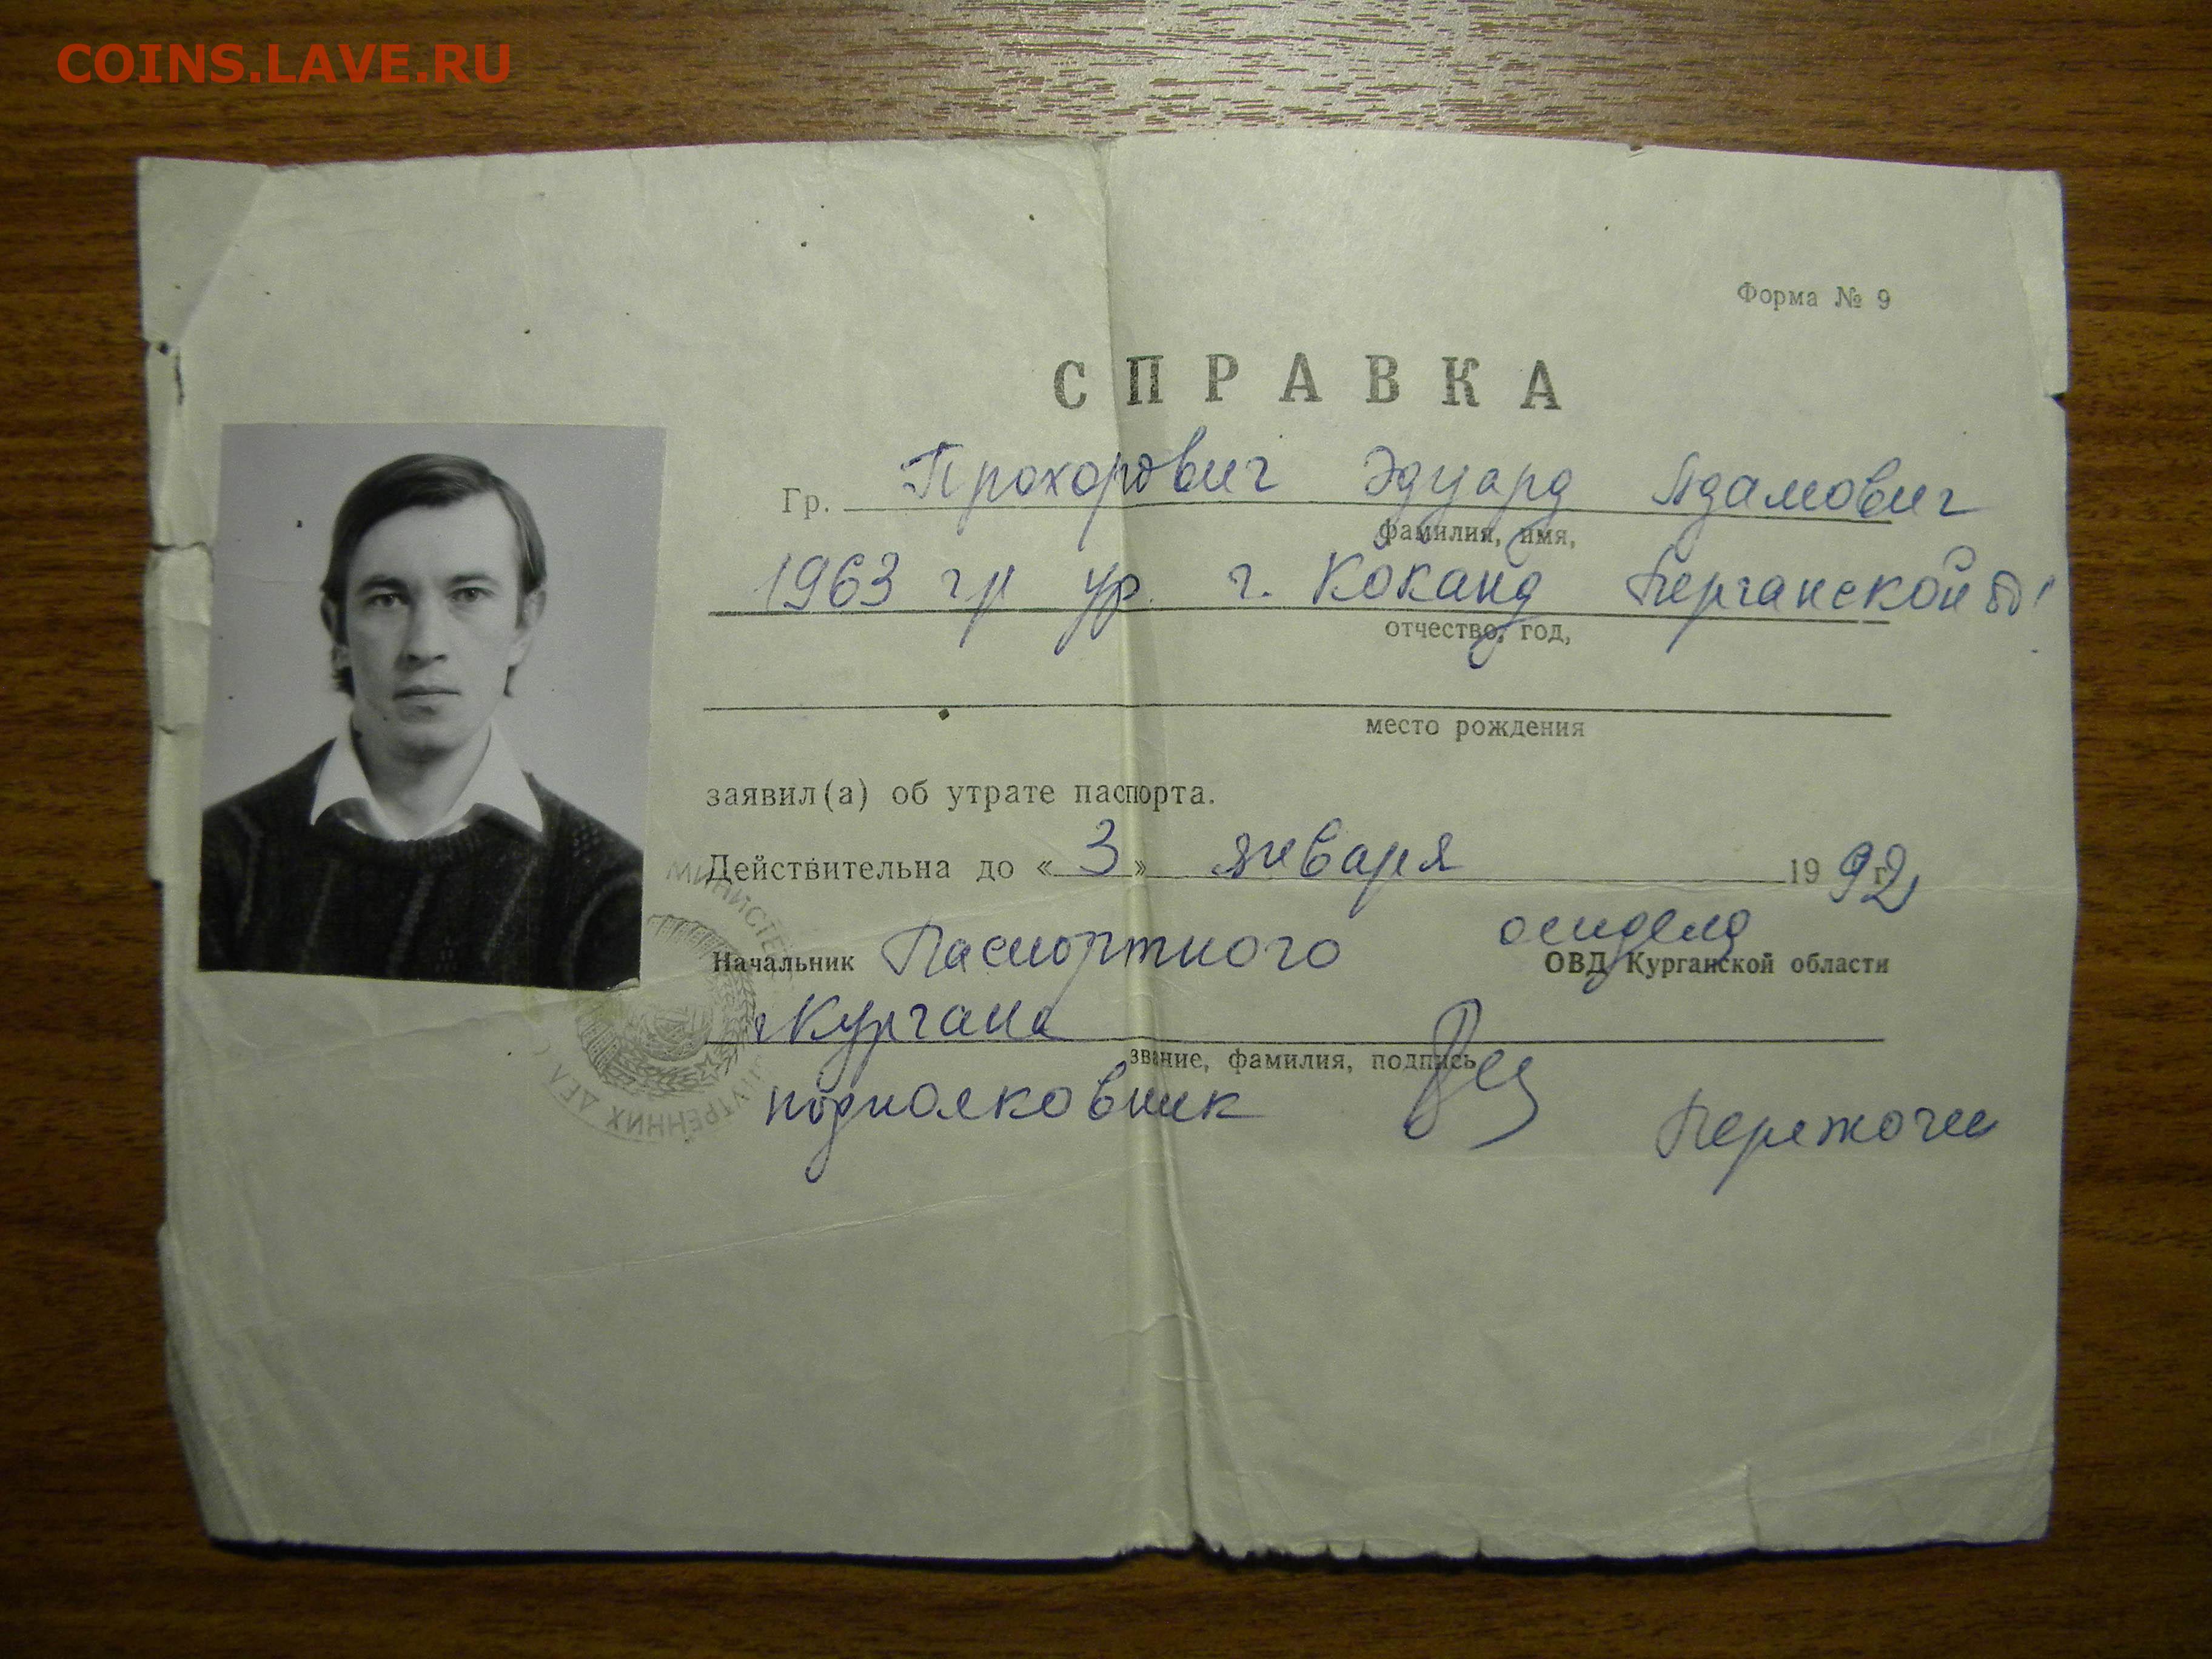 COINS.LAVE.RU
Форма № 9
СПРАВКА
Гр. Прохорович Эдуард Адамович
фамилия, имя,
1963 гр ур. г. Коканд Ферганской
отчество, год,
место рождения
заявил(а) об утрате паспорта.
Действительна до «3» января 1992 г.
Начальник Паспортного ОВД Курганской области
Кургана
звание, фамилия, подпись
подполковник
ВНУТРЕННИХ ДЕЛ